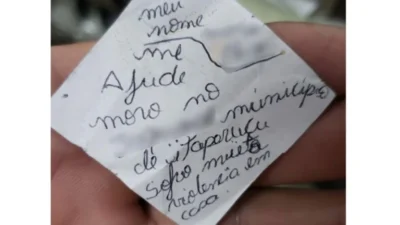 meu
nome
me
Ajude
moro no
município
dê itaporucu
sofro muito
violencia em
casa.